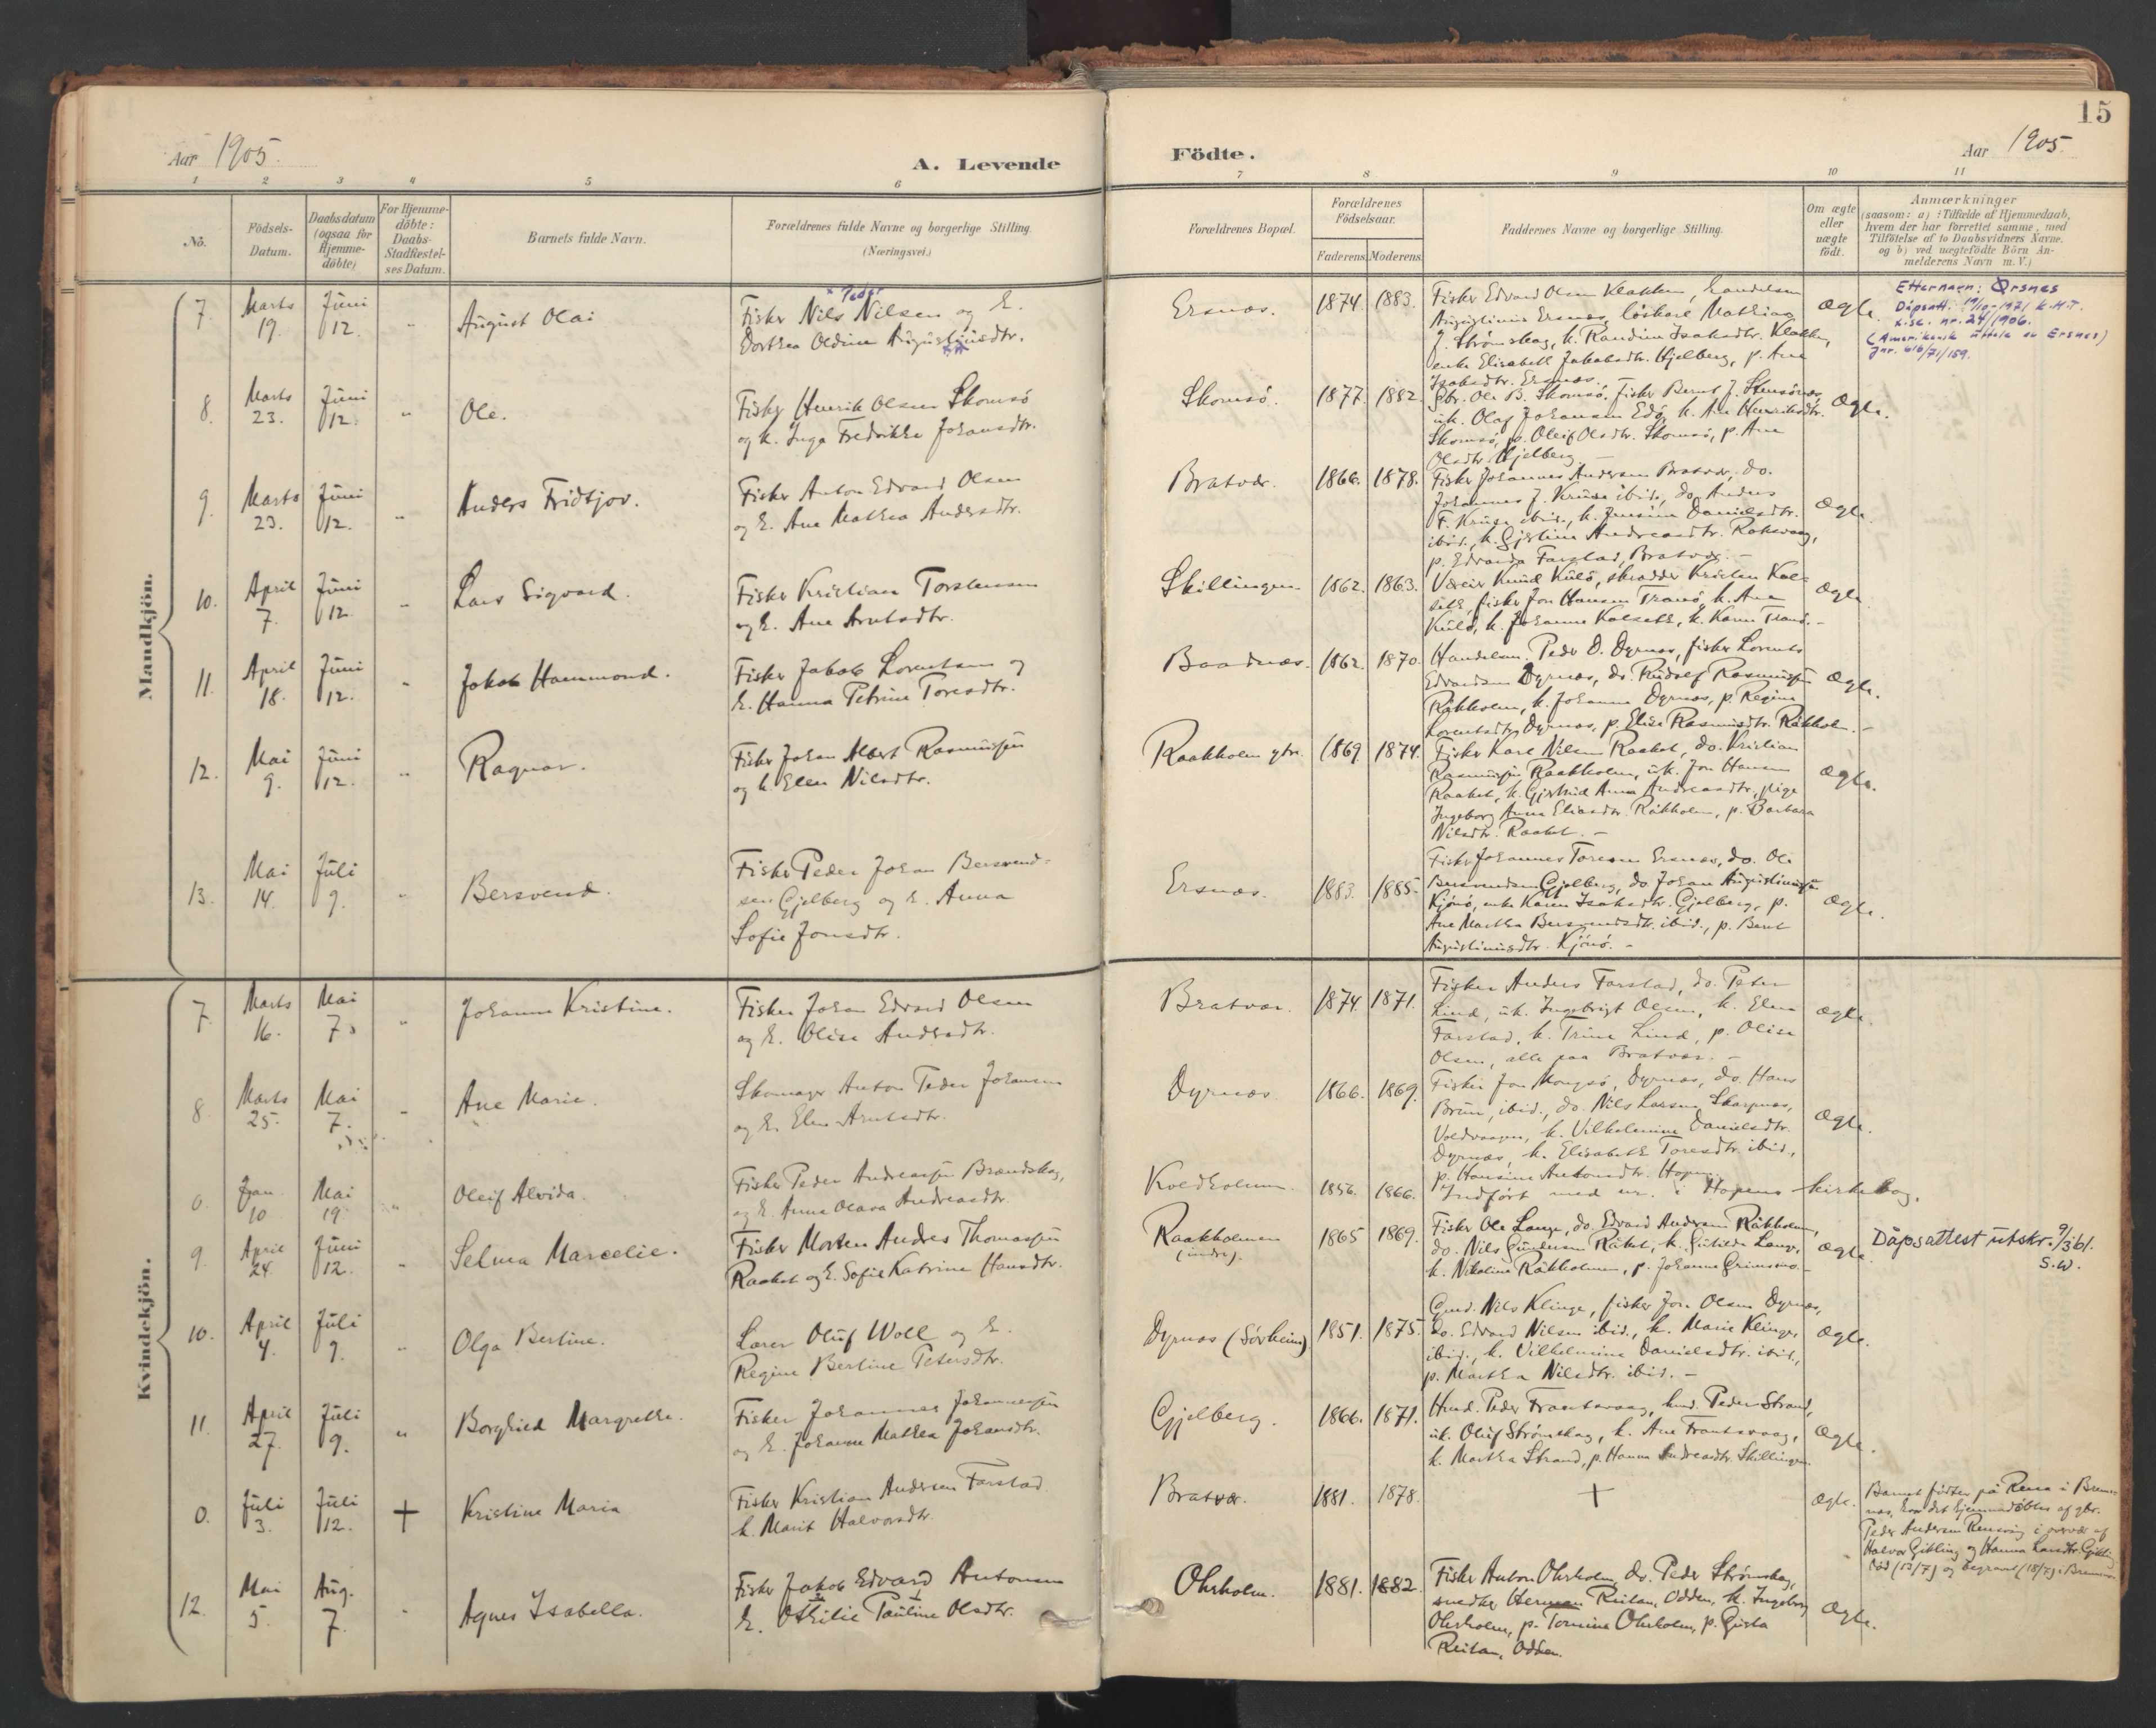 15
Aar 1905.
A. Levende
Födte.
Aar 1905
1 2 3 4 5 6 7 8 9 10 11
No.
Födsels-
Datum.
Daabsdatum
(ogsaa for
Hjemme-
döbte)
For Hjemme-
döbte:
Daabs-
Stadfæstel-
ses Datum.
Barnets fulde Navn.
Forældrenes fulde Navne og borgerlige Stilling.
(Næringsvei.)
Forældrenes Bopæl.
Forældrenes
Födselsaar.
Faderens. Moderens.
Faddernes Navne og borgerlige Stilling.
Om ægte
eller
uægte
födt.
Anmærkninger
(saasom: a) i Tilfælde af Hjemmedaab,
hvem der har forrettet samme, med
Tilföielse af to Daabsvidners Navne.
og b) ved uægtefödte Börn An-
melderens Navn m. V.)
Mandkjön.
7. Marts 19. Juni 12. " August Olai
x Peder
Fisker Nils Nilsen og h.
Dorthea Oldine Augustinusdtr.
Ersnæs. 1874. 1883.
Fisker Edvard Olsen Klakken, handelsm.
Augustinus Ersnæs, løskarl Mathias
J. Strømskag, k. Randine Isaksdtr. Klakken,
enke Elisabeth Jakobsdtr. Hjelberg, p. Ane
Isaksdtr. Ersnæs.
ægte.
Etternavn: Ørsnes
Dåpsatt. 19/10-1971 K.H.T.
x.se. nr. 24/1906.
(Amerikansk uttale av Ersnes)
Jnr. 616/71/159.
8. Marts 23. Juni 12. " Ole.
Fisker Henrik Olsen Skomsö
og h. Inga Fredrikke Johansdtr.
Skomsö. 1877. 1882.
Gbr. Ole B. Skomsö, fisker Bernt J. Stensönæs,
uk. Olaf Johansen Edö, k. Ane Henriksdtr.
Skomsö, p. Oleif Olsdtr. Skomsö, p. Ane
Olsdtr. Hjelberg. –
Ægte.
9. Marts 23. Juni 12. " Anders Fridtjov.
Fisker Anton Edvard Olsen
og h. Ane Mathea Andersdtr.
Bratvær. 1866. 1878.
Fisker Johannes Andersen Bratvær, do.
Johannes J. Kruse ibid., do. Anders
F. Kruse ibid., k. Jensine Danielsdtr.
ibid., k. Gjertine Andreasdtr. Roksvaag,
p. Edvarda Farstad, Bratvær. –
Ægte.
10. April 7. Juni 12. " Lars Sigvard.
Fisker Kristian Torstensen
og h. Ane Arntsdtr.
Skillingen 1862. 1863.
Væreier Knud Kulö, skrædder Kristen Kol-
seth, fisker Jon Hansen Tranö, k. Ane
Kulö, k. Johanne Kolseth, k. Karen Tranö. –
Ægte.
11. April 18. Juni 12. " Jakob Hammond.
Fisker Jakob Lorentsen og
h. Hanna Petrine Toresdtr.
Baadnæs. 1862. 1870.
Handelsm. Peder D. Dyrnæs, fisker Lorents
Edvardsen Dyrnæs, do. Rudolf Rasmussen
Råkholm, k. Johanna Dyrnæs, p. Regine
Lorentsdtr. Dyrnæs, p. Elise Rasmusdtr. Råkholm. –
Ægte.
12. Mai 9. Juni 12. " Ragnar.
Fisker Johan Albert Rasmussen
og h. Elen Nilsdtr.
Raakholm ytr. 1869 1874.
Fisker Karl Nilsen Raaket, do. Kristian
Rasmussen Raakholm, uk. Jon Hansen
Raaket, k. Gjertrud Anna Andreasdtr., pige
Ingeborg Anna Eliasdtr. Råkholm, p. Barbara
Nilsdtr. Raaket. –
Ægte.
13. Mai 14. Juli 9. " Bersvend.
Fisker Peder Johan Bersvend-
sen Gjelberg og h. Anna
Sofie Jonsdtr.
Ersnæs. 1883. 1885.
Fisker Johannes Toresen Ersnæs, do. Ole
Bersvendsen Gjelberg, do. Johan Augustinussen
Kjönö, enke Karen Isaksdtr. Gjelberg, p.
Ane Marthea Bersvendsdtr. ibid., p. Berit
Augustinusdtr. Kjönö. –
Ægte.
Kvindekjön.
7. Marts 16. Mai 7. " Johanne Kristine.
Fisker Johan Edvard Olsen
og h. Olise Andersdtr.
Bratvær. 1874. 1871.
Fisker Anders Farstad, do. Peter
Lind, uk. Ingebrigt Olsen, k. Elen
Farstad, k. Trine Lind, p. Olise
Olsen, alle paa Bratvær. –
Ægte.
8. Marts 25. Mai 7. " Ane Marie.
Skomager Anton Peder Johansen
og h. Elen Arntsdtr.
Dyrnæs 1866. 1869.
Fisker Jon Mongsö, Dyrnæs, do. Hans
Bruun, ibid., do. Nils Larsen Skarpnæs,
Voldvaagen, k. Vilhelmine Danielsdtr.
Dyrnæs, k. Elisabeth Toresdtr. ibid.,
p. Hansine Antonsdtr. Hopen.
Ægte.
0. Jan. 10 Mai 19 " Oleif Alvida.
Fisker Peder Andreassen Brændskag,
og h. Anna Olava Andreasdtr.
Kvedholmen. 1856. 1866.
Indført med nr. i Hopens kirkebog.
9. April 24. Juni 12. " Selma Marcelie.
Fisker Morten Andreas Thomassen
Raaket og h. Sofie Katrine Hansdtr.
Raakholmen
(indre).
1865 1869.
Fisker Ole Lange, do. Edvard Andersen Råkholmen,
do. Nils Gundersen Råket, k. Gurilde Lange,
k. Nikoline Råkholmen, p. Johanne Grimsmo. –
Ægte.
Dåpsattest utskr. 9/3 61.
S.W.
10. April 4. Juli 9. " Olga Bertine.
Lærer Oluf Woll og h.
Regine Bertine Petersdtr.
Dyrnæs (Sørheim) 1851. 1875.
Gmd. Nils Klinge, fisker Jon Olsen Dyrnæs,
do. Edvard Nilsen ibid., k. Marie Klinge
ibid., k. Vilhelmine Danielsdtr. ibid.,
p. Marthea Nilsdtr. ibid. –
Ægte.
11. April 27. Juli 9. " Borghild Margrethe.
Fisker Johannes Johannessen
og h. Johanne Mathea Johansdtr.
Gjelberg. 1866. 1871.
Hmd. Peder Frantsvaag, hmd. Peder Strand,
uk. Oluf Strömskag, k. Ane Frantsvaag,
k. Marthea Strand, p. Hanna Andreasdtr. Skillingen.
Ægte.
0. Juli 3. Juli 12. + Kristine Maria
Fisker Kristian Andersen Farstad
h. Marit Halvorsdtr.
Bratvær. 1881. 1878.
+
Ægte.
Barnet födtes på Rena i Brems-
næs, hvor det hjemmedöbtes af gbr.
Peder Andersen Rensvig i overvær af
Halvor Gikling og Hanna Larsdtr. Gikling.
Död (13/7) og begravet (18/7) i Bremsn.
12. Mai 5. Aug. 7. " Agnes Isabella.
Fisker Jakob Edvard Antonsen
h. Othilie Pauline Olsdtr.
Ohrholm. 1881. 1882.
Fisker Anton Ohrholm, do. Peder Strömskag,
snedker Herman Reitan, Odden, k. Ingeborg
Ohrholm, p. Tomine Ohrholm, p. Gusta
Reitan, Odden.
Ægte.